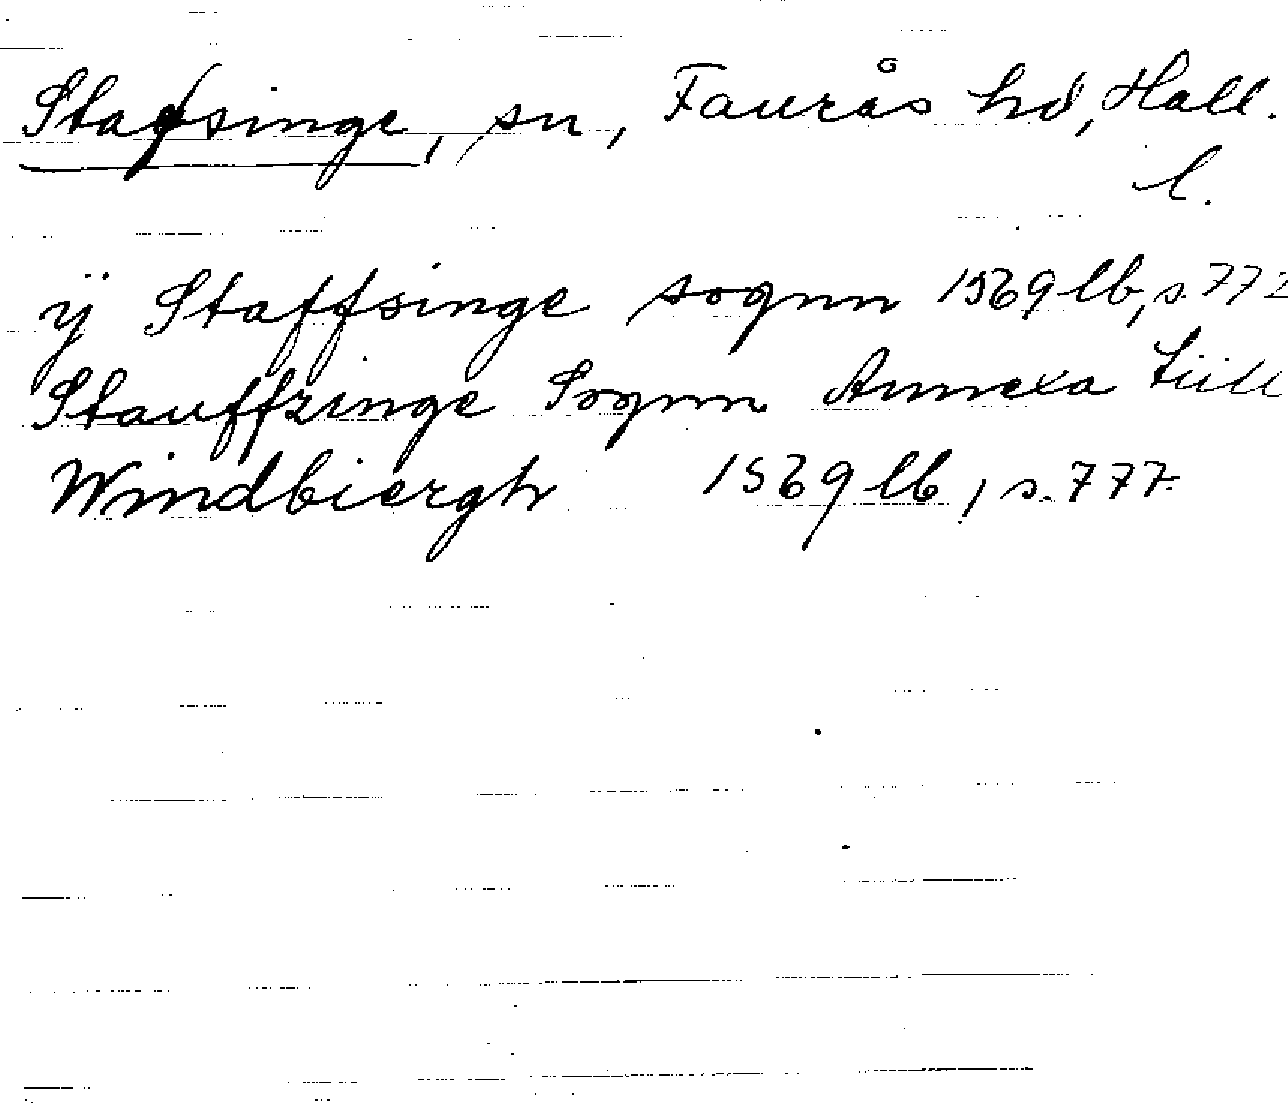 Stafsinge, sn, Faurås hd, Hall.
l.
ÿ Staffsinge sognn 1569 lb, s. 772
Stauffzinge Sognn Annexa tiill
Windbiergh 1569 lb, s. 777.